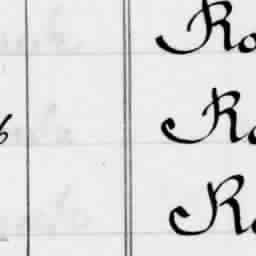 Ro
6 Ro
Ro